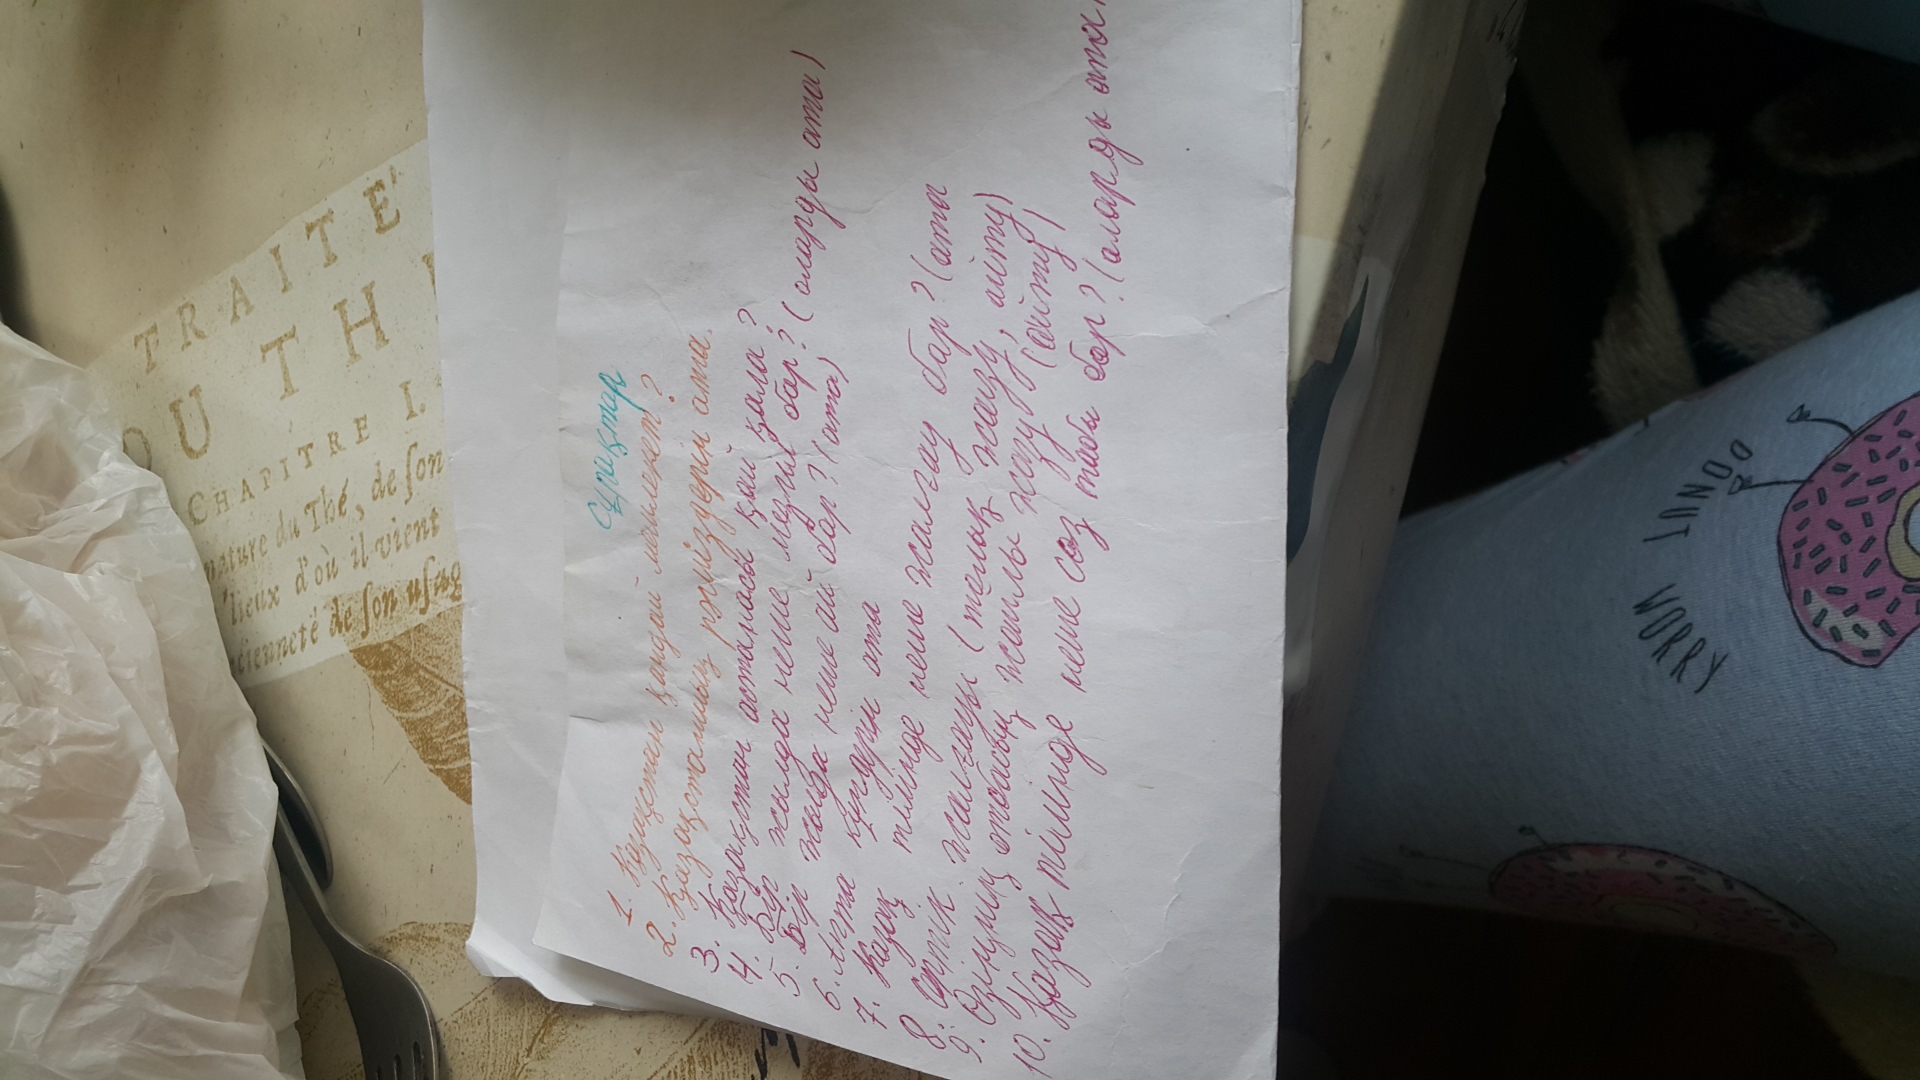 сұрақтар
1. Қазақстан қандай мемлекет?
2. Қазақстанның рәміздерін ата.
3. Қазақстан астанасы қай қала?
4. Бір жылда неше мезгіл бар? (оларды ата)
5. Бір жылда неше ай бар? (ата)
6. Апта күндерін ата
7. Қазақ тілінде неше жалғау бар? (ата
8. Септік жалғауы (толық жазу, айту)
9. Өзіңнің отбасың жайлы жазу (айту)
10. Қазақ тілінде неше сөз табы бар? (оларды ата)
TRAITÉ
OU TH
CHAPITRE I.
nature du Thé, de son
lieux d'où il vient
cienneté de son usag
DONUT
WORRY